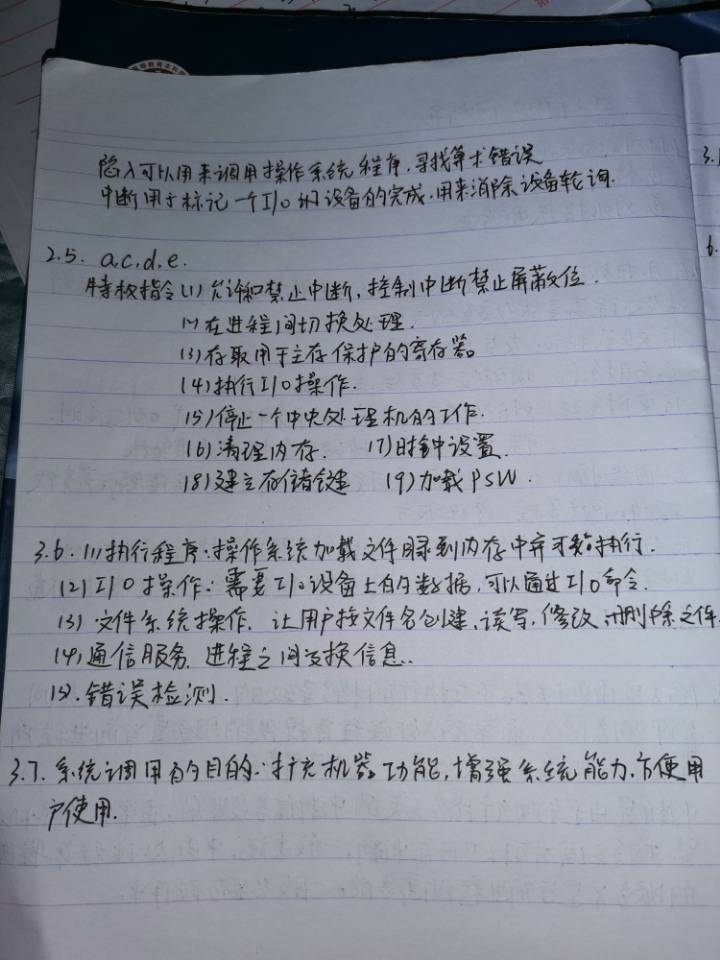 陷入可以用来调用操作系统程序,寻找算术错误
中断用于标记一个I/O的设备的完成,用来消除设备轮询.
2.5. a,c,d,e.
特权指令(1)允许和禁止中断,控制中断禁止屏蔽位.
(2)在进程间切换处理.
(3)存取用于主存保护的寄存器。
(4)执行I/O操作.
(5)停止一个中央处理机的工作.
(6)清理内存. (7)时钟设置.
(8)建立存储键 (9)加载PSW.
3.6. (1)执行程序:操作系统加载文件目录到内存中并开始执行.
(2)I/O操作:需要I/O设备上的数据,可以通过I/O命令.
(3)文件系统操作,让用户按文件名创建、读写,修改,删除文件
(4)通信服务,进程之间交换信息.
(5).错误检测.
3.7. 系统调用的目的:扩充机器功能,增强系统能力,方便用
户使用.
3.
6.